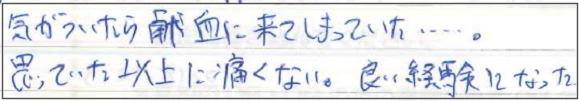 気がついたら献血に来てしまっていた……。
思っていた以上に痛くない。良い経験になった